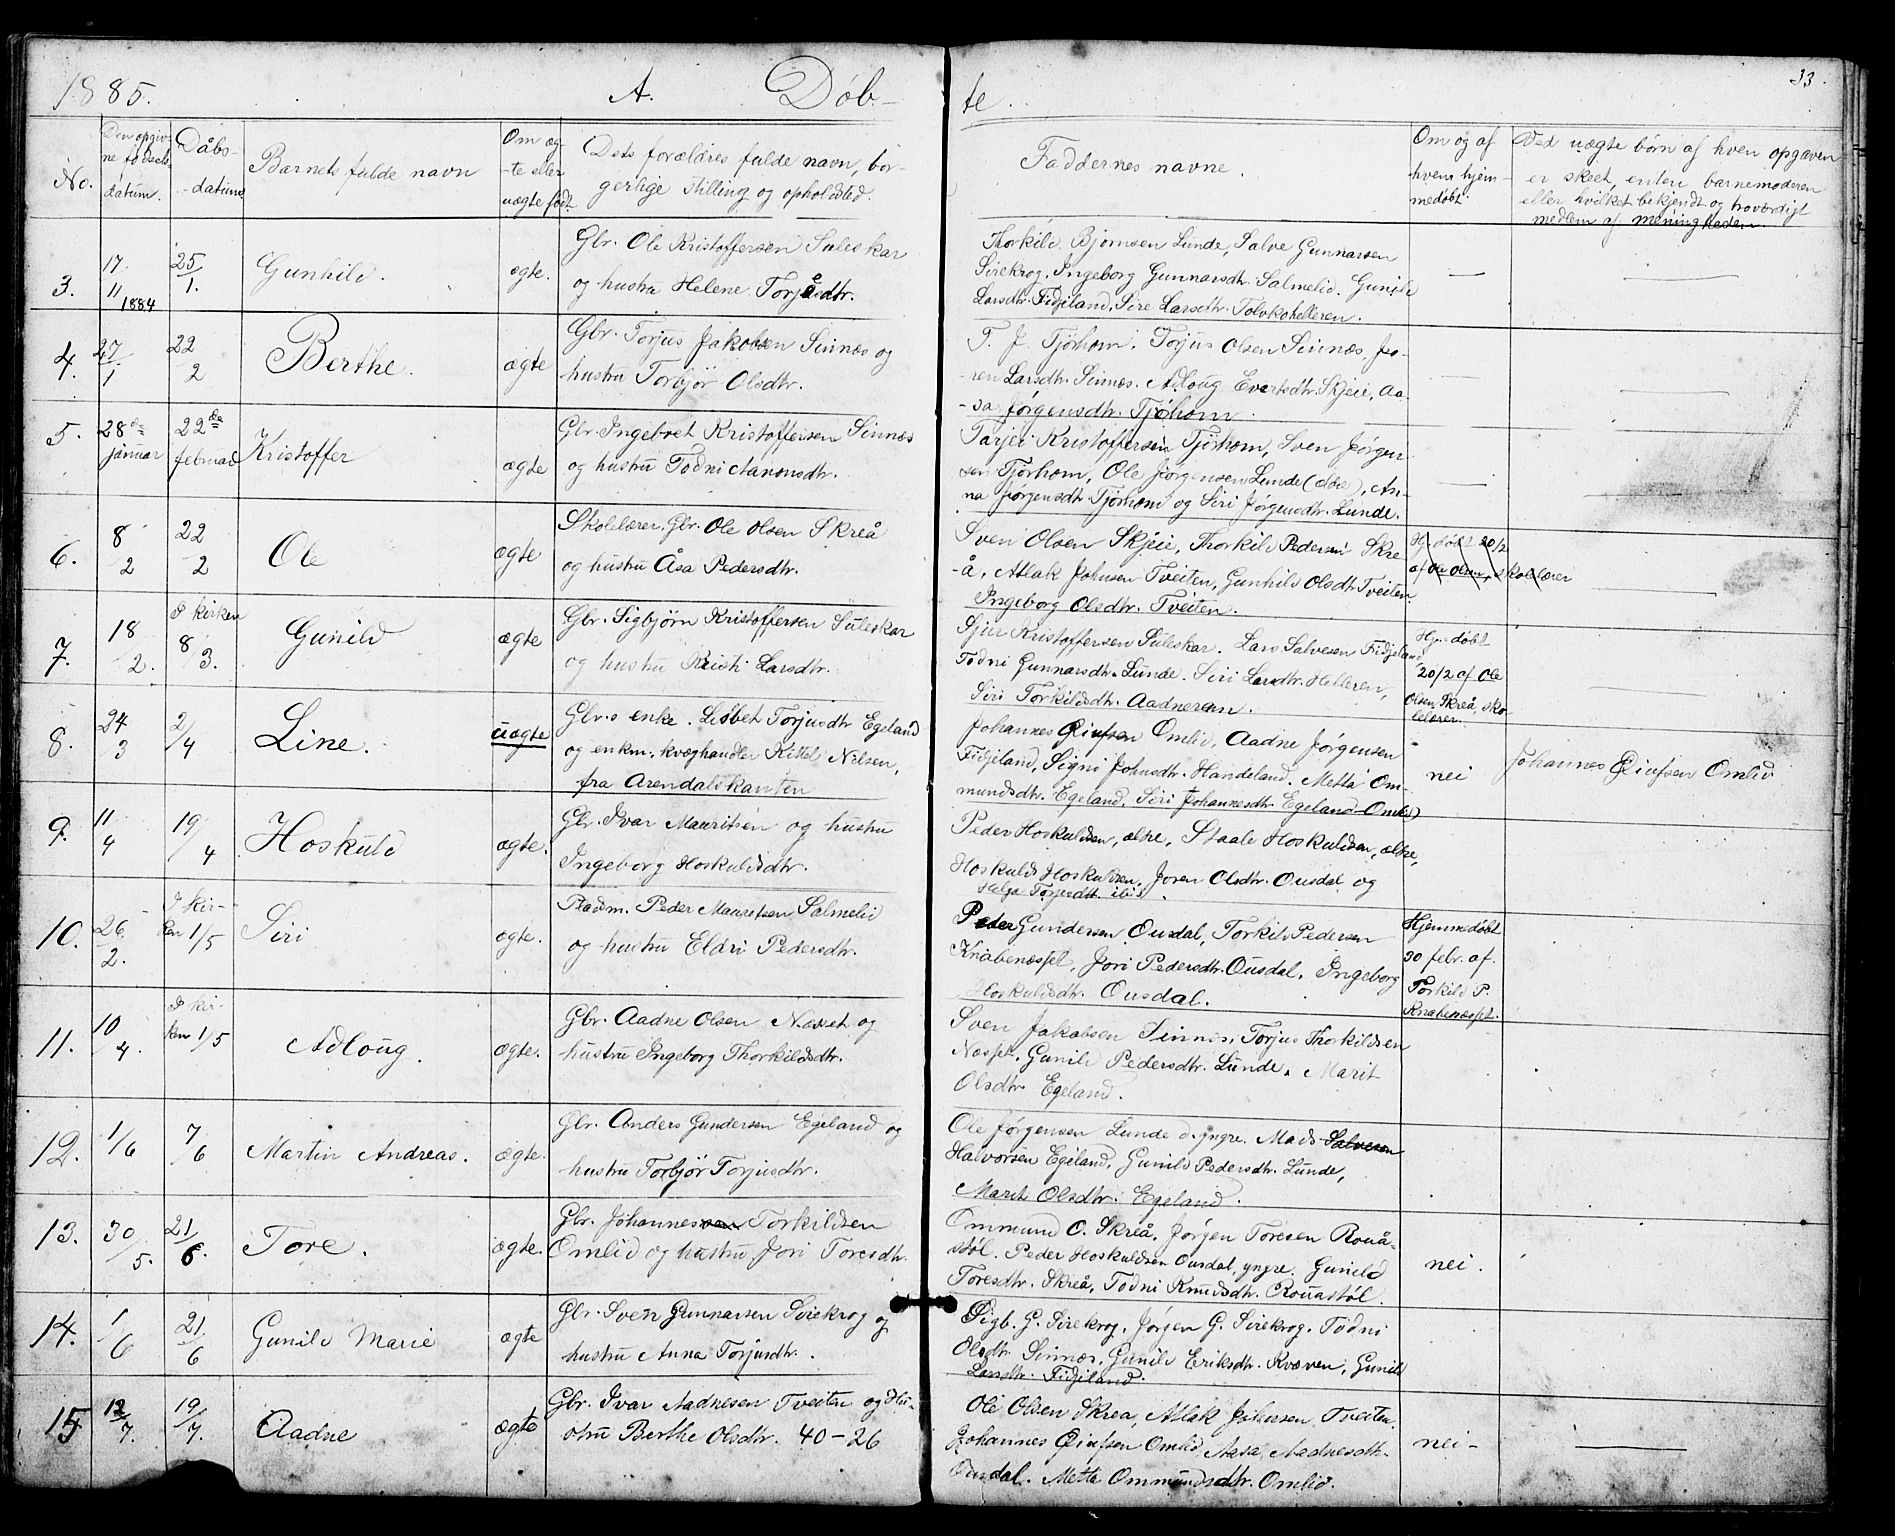 33.
1885. A. Døb- te.
No. Den opgivne fødsels datum. Dåbs-datum. Barnets fulde navn Om ægte eller uægte født. Dets forældres fulde navn, borgerlige stilling og opholdsted. Faddernes navne. Om og af hvem hjemmedøbt. Ved uægte børn af hvem opgaven er skeet, enten barnemoderen eller hvilket bekjendt og troværdigt medlem af menigheden.
3. 17/11 1884 25/1. Gunhild. ægte. Gbr. Ole Kristoffersen Suleskar
og hustru Helene Torjåsdtr.
Thorkild Bjørnsen Lunde, Salve Gunnarsen
Sirekrog, Ingeborg Gunnarsdtr. Salmelid. Gunild
Larsdtr. Fidjeland, Sire Larsdtr. Tolvkohelleren.
4. 27/1 22/2 Berthe. ægte Gbr. Torjus Jakobsen Sinnes og
hustru Torbjør Olsdtr.
T. J. Tjørhom, Torjus Olsen Sinnes, Jo-
ren Larsdtr. Sinnes. Adloug Evertsdtr. Skjeie, Aa-
sa Jørgensdtr. Tjørhom.
5. 28de januar 22de februar Kristoffer ægte Gbr. Ingebret Kristoffersen Sinnes
og hustru Tødni Aanonsdtr.
Tarjei Kristoffersen Tjørhom, Sven Jørgen-
sen Tjørhom, Ole Jørgensen Lunde (eldre), An-
na Jørgensdtr. Tjørhom og Siri Jørgensdtr. Lunde.
6. 8/2 22/2 Ole ægte Skolelærer, Gbr. Ole Olsen Skreå
og hustru Åsa Pedersdtr.
Sven Olsen Skjeie, Thorkild Pedersen Skre-
å, Atlak Johnsen Tveiten, Gunhild Olsdtr. Tveiten.
Ingeborg Olsdtr. Tveiten.
Hj. døbt 20/2
af Ole Olsen, skolelærer
7. 18/2. I kirken 8/3. Gunild ægte Gbr. Sigbjørn Kristoffersen Suleskar
og hustru Kristi Larsdtr.
Sjur Kristoffersen Suleskar. Lars Salvesen Fidjeland
Tødni Gunnarsdtr. Lunde. Siri Larsdtr. Helleren,
Siri Torkildsdtr. Aadneram.
Hj. døbt
20/2 af Ole
Olsen Skreå, sko-
lelærer.
8. 24/3 2/4 Line. uægte Gbr.s enke. Lisbet Torjusdtr Egeland
og enkm. kvæghandler Kittel Nilsen,
fra Arendalskanten
Johannes Omlid, Aadne Jørgensen
Fidjeland, Signi Johnsdtr. Handeland. Metta Om-
mundsdtr. Egeland, Siri Johannesdtr. Egeland Omlid
nei Johannes Omlid
9. 11/4 19/4 Hoskuld ægte. Gbr. Ivar Mauritsen og hustru
Ingeborg Hoskuldsdtr.
Peder Hoskuldsen, eldre, Staale Hoskuldsen, eldre,
Hoskuld Hoskuldsen, Joren Olsdtr. Ousdal og
Helga Torjusdtr. ibid.
10. 26/2. I kirken 1/5 Siri ægte. Pladsm. Peder Mauritsen Salmelid
og hustru Eldri Pedersdtr.
Peder Gundersen Ousdal, Torkild Pedersen
Knabenæsset, Jori Pedersdtr. Ousdal. Ingeborg
Hoskuldsdtr. Ousdal.
Hjemmedøbt
30 febr. af.
Torkild P.
Knabenæsset.
11. 10/4. I kirken 1/5 Adloug. ægte. Gbr. Aadne Olsen Næsset og
hustru Ingeborg Thorkildsdtr.
Sven Jakobsen Sinnes, Torjus Thorkildsen
Næsset. Gunild Pedersdtr. Lunde. Marit
Olsdtr Egeland.
12. 1/6 7/6 Martin Andreas. ægte. Gbr. Anders Gundersen Egeland og
hustru Torbjør Torjusdtr.
Ole Jørgensen Lunde d. yngre. Mads Salvesen
Halvorsen Egeland, Gunild Pedersdtr. Lunde,
Marit Olsdtr. Egeland.
13. 30/5. 21/6. Tore. ægte. Gbr. Johannessen Torkildsen
Omlid og hustru Jori Toresdtr.
Ommund O. Skreå, Jørgen Toresen Rouå-
støl. Peder Hoskuldsen Ousdal, yngre. Gunild
Toresdtr. Skreå, Tødni Knudsdtr. Rouåstøl.
nei.
14. 1/6 21/6 Gunild Marie ægte Gbr. Sven Gunnarsen Sirekrog og
hustru Anna Torjusdtr.
Sigb. G. Sirekrog. Jørgen G. Sirekrog. Tødni
Olsdtr. Sinnes, Gunild Eriksdtr. Kvæven, Gunild
Larsdtr. Fidjeland.
15 12/7. 19/7. Aadne ægte Gbr. Ivar Aadnesen Tveiten og Hu-
stru Berthe Olsdtr. 40-26
Ole Olsen Skreå, Atlak Johnsen Tveiten
Johannes Omlid Aasa Aadnesdtr.
Ousdal. Metta Ommundsdtr. Omlid.
nei-